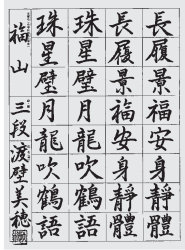 長履景福安身靜體
長履景福安身靜體
珠星璧月龍吹鶴語
珠星璧月龍吹鶴語
福山 三段 渡壁美穂